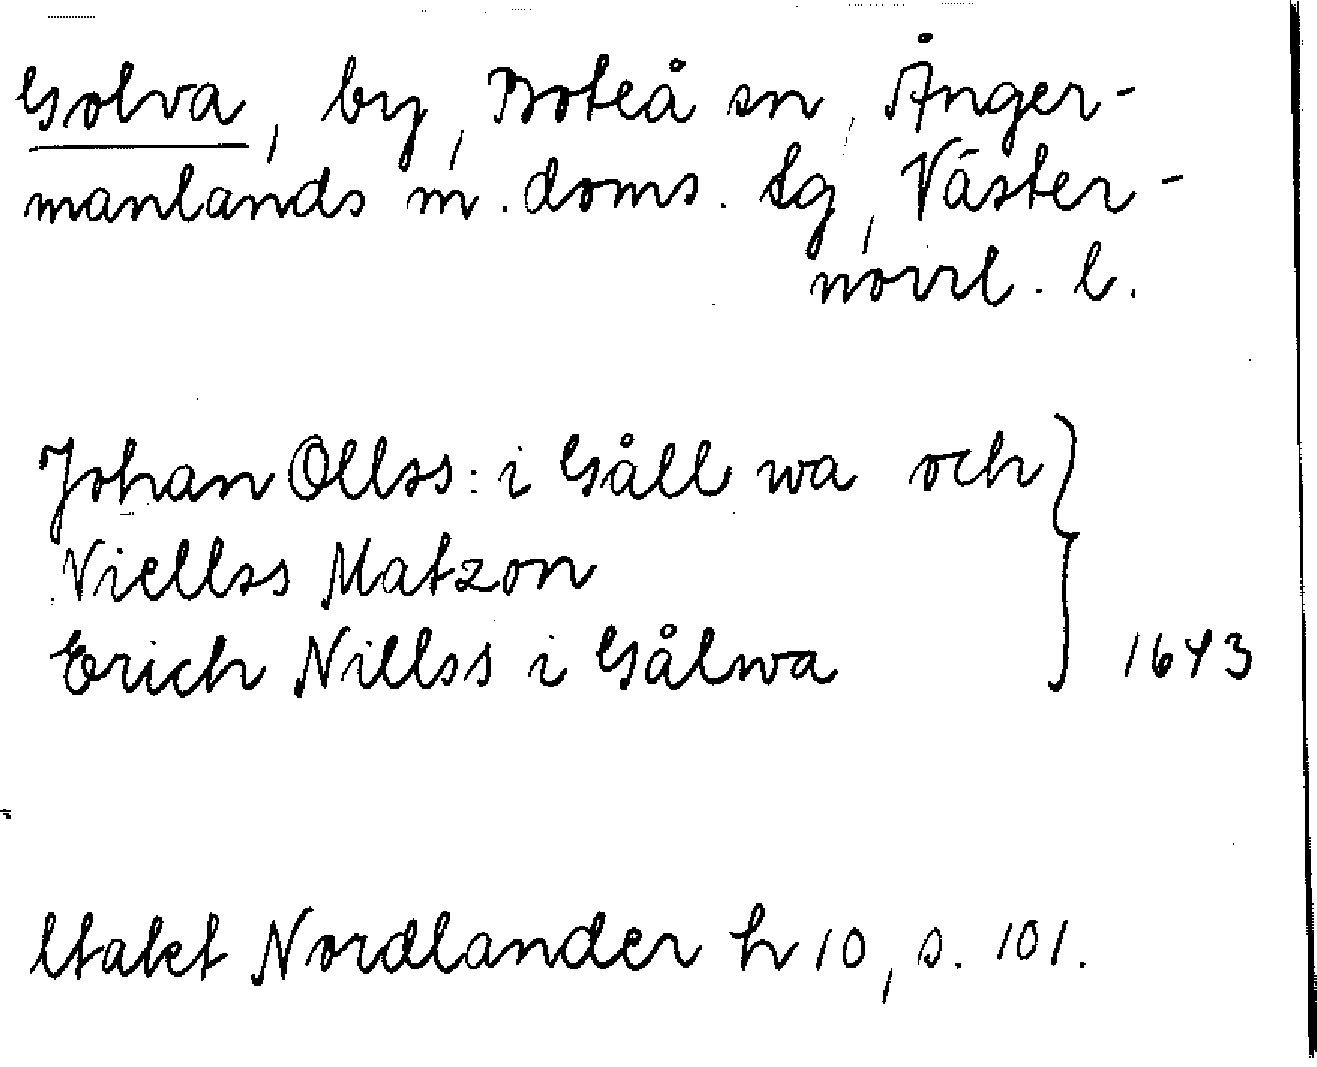 Golva, by, Boteå sn, Ånger-
manlands m. doms. tg, Väster-
norrl. l.
Johan Ollss: i Gåll wa och
Niellss Matzon
Erich Nillss i Gålwa } 1643
Utalet Nordlander h 10, s. 101.